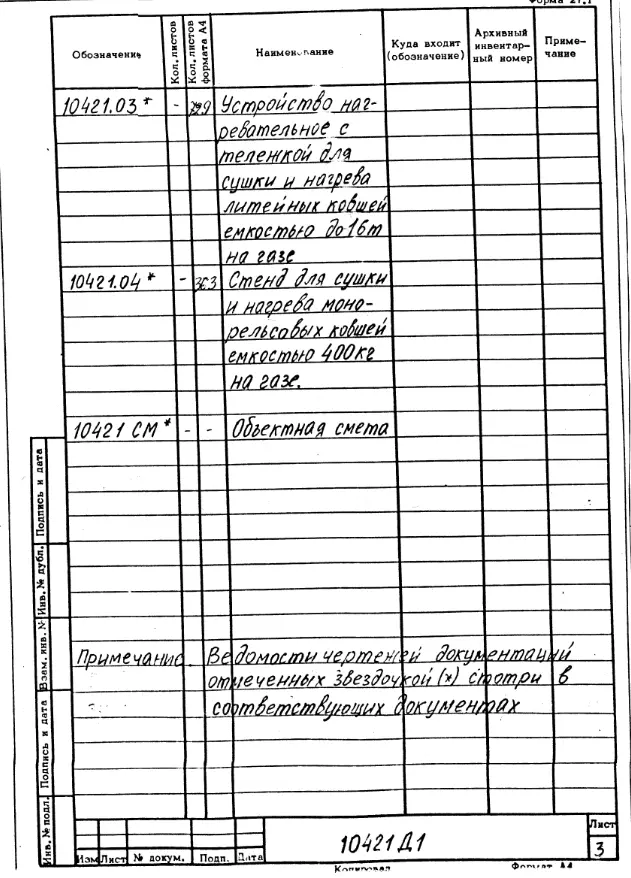 Форма 27.1
Обозначение
Кол. листов
Кол. листов формата А4
Наименование
Куда входит (обозначение)
Архивный инвентарный номер
Приме-
чание
10421.03 * -
Устройство наг-
ревательное с
тележкой для
сушки и нагрева
литейных ковшей
емкостью до 16т
на газе
10421.04 * - 363 Стенд для сушки
и нагрева моно-
рельсовых ковшей
емкостью 400кг
на газе.
10421 СМ * - - Объектная смета
Примечание. Ведомости чертежей документаций
отмеченных звездочкой (*) смотри в
соответствующих документах
Подпись и дата
Инв. № дубл.
Взам. инв. №
Подпись и дата
Инв. № подл.
Изм Лист № докум. Подп. Дата
10421 Д1
Лист
3
Копировал
Формат А4